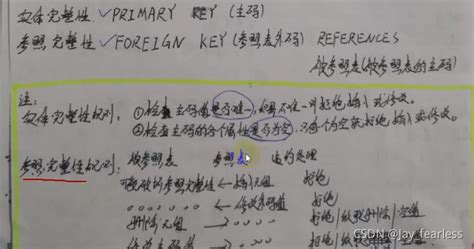 实体完整性 ✓ PRIMARY KEY (主码)
参照完整性 ✓ FOREIGN KEY (参照表外码) REFERENCES
被参照表(被参照表的主码)
注:
实体完整性规则: ①检查主码值是否唯一, 如果不唯一则拒绝插入或修改。
②检查主码的各个属性是否为空, 只要有个为空就拒绝插入或修改。
参照完整性规则: 被参照表 参照表 违约处理
可能破坏参照完整性 ← 插入元组 拒绝
。。。。。。 ← 修改外码值 拒绝
删除元组 → 。。。。。 拒绝/级联删除/空值
修改主码值 → 。。。。
CSDN @Jay_fearless